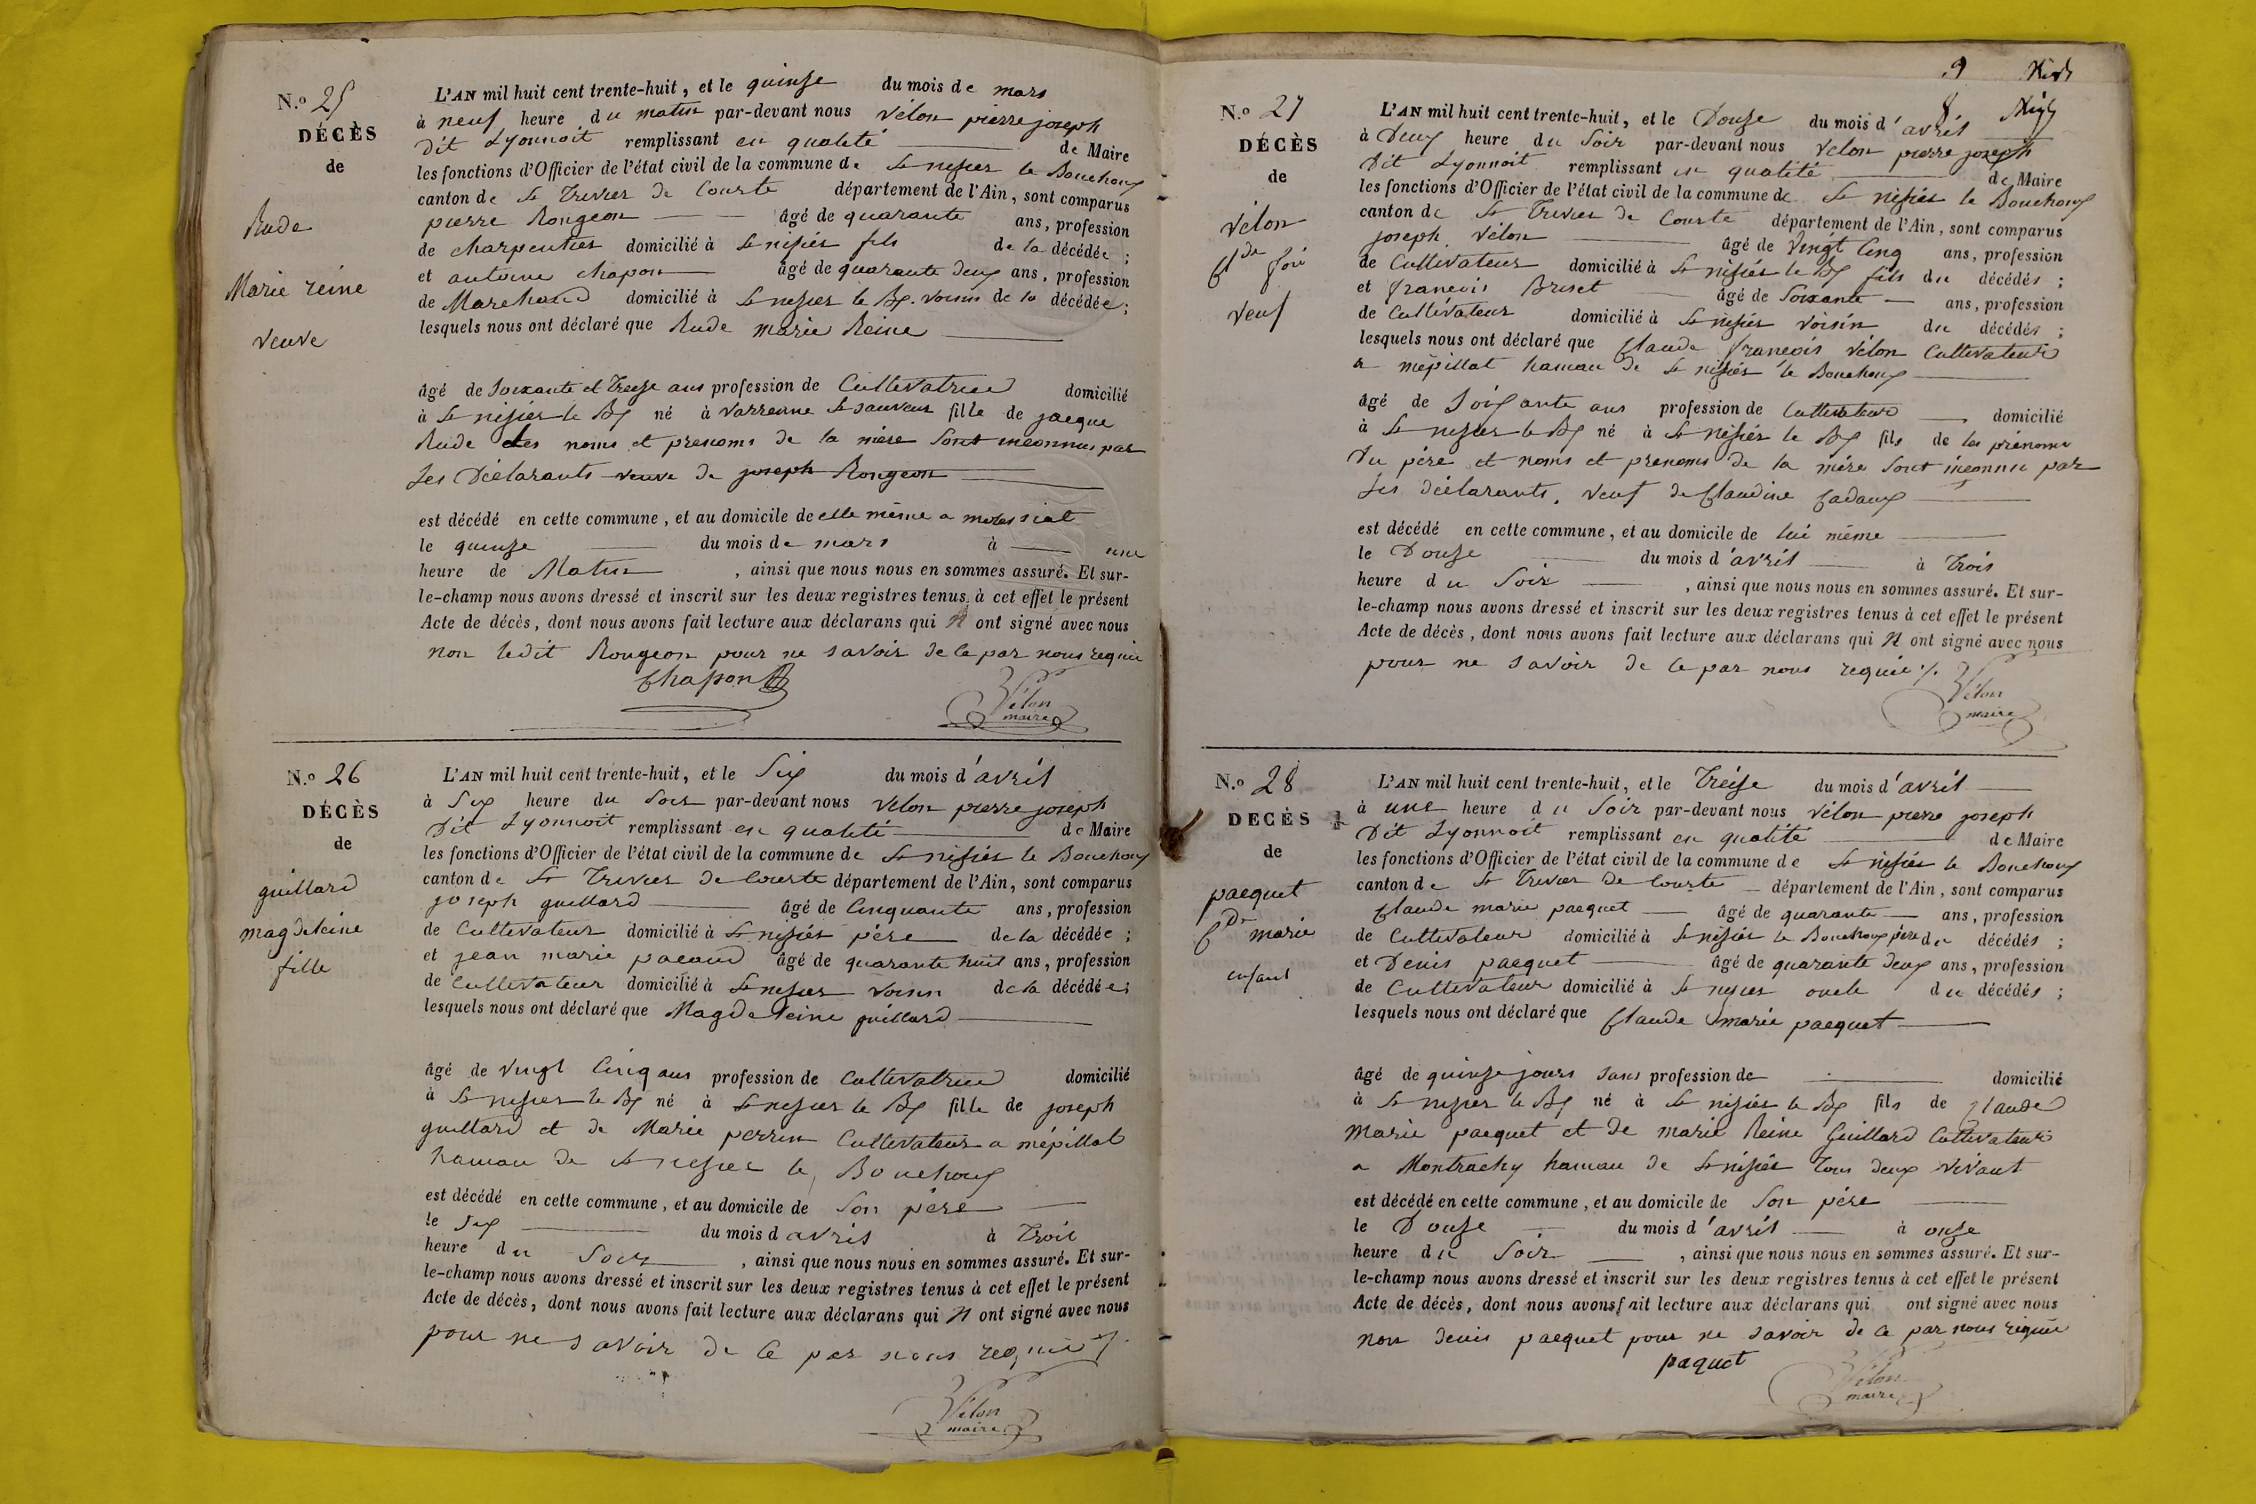 N.o 25
DÉCÈS
de
Rude
Marie reine
veuve
L'AN mil huit cent trente-huit, et le quinze du mois de mars
à neuf heure du matin par-devant nous Vélon pierre joseph
Dit Lyonnoit remplissant en qualité de Maire
les fonctions d'Officier de l'état civil de la commune de St nisiés le Bouchoux
canton de St Trivier de Courte département de l'Ain, sont comparus
pierre Rongeon âgé de quarante ans, profession
de charpentier domicilié à St nisiés fils de la décédée ;
et antoine chapon âgé de quarante deux ans, profession
de Marchand domicilié à St nisies le Bx voisin de la décédée ;
lesquels nous ont déclaré que Rude marie Reine
âgé de Soixante et Treize ans profession de Cultivatrice domicilié
à St nisiés le Bx né à Varrenne St sauveur fille de jacque
Rude Les noms et prenoms de la mère Sont inconnus par
Les Déclarants veuve de joseph Rongeon
est décédé en cette commune, et au domicile de elle même a
le quinze du mois de mars à une
heure de Matin , ainsi que nous nous en sommes assuré. Et sur-
le-champ nous avons dressé et inscrit sur les deux registres tenus à cet effet le présent
Acte de décès, dont nous avons fait lecture aux déclarans qui N ont signé avec nous
non ledit Rongeon pour ne savoir de ce par nous requie
Chapon
Vélon
maire
N.o 26
DÉCÈS
de
guillard
magdeleine
fille
L'AN mil huit cent trente-huit, et le Six du mois d'avril
à Six heure du Soir par-devant nous Vélon pierre joseph
Dit Lyonnoit remplissant en qualité de Maire
les fonctions d'Officier de l'état civil de la commune de St nisiés le Bouchoux
canton de St Trivier de Courte département de l'Ain, sont comparus
joseph guillard âgé de Cinquante ans, profession
de Cultivateur domicilié à St nisiés père de la décédée ;
et jean marie pacaud âgé de quarante huit ans, profession
de Cultivateur domicilié à St nisies voisin de la décédée ;
lesquels nous ont déclaré que Magdeleine guillard
âgé de vingt Cinq ans profession de Cultivatrice domicilié
à St nisies le Bx né à St nisies le Bx fille de joseph
guillard et de Marie perrin Cultivateur a mépillat
hamau de St nisies le Bouchoux
est décédé en cette commune, et au domicile de Son père
le Six du mois d avril à Trois
heure du Soir , ainsi que nous nous en sommes assuré. Et sur-
le-champ nous avons dressé et inscrit sur les deux registres tenus à cet effet le présent
Acte de décès, dont nous avons fait lecture aux déclarans qui N ont signé avec nous
pour ne savoir de Ce par nous requie ./.
Vélon
maire
9
8
N.o 27
DÉCÈS
de
Vélon
Cde foi
veuf
L'AN mil huit cent trente-huit, et le Douze du mois d'avril
à Deux heure du Soir par-devant nous Vélon pierre joseph
Dit Lyonnoit remplissant en qualité de Maire
les fonctions d'Officier de l'état civil de la commune de St nisiés le Bouchoux
canton de St Trivier de Courte département de l'Ain, sont comparus
joseph Vélon âgé de Vingt Cinq ans, profession
de Cultivateur domicilié à St nisiés le Bx fils du décédés ;
et françois Briset âgé de Soixante ans, profession
de Cultivateur domicilié à St nisiés voisin du décédés ;
lesquels nous ont déclaré que Claude françois Vélon Cultivateur
a mépillat hamau de St nisiés le Bouchoux
âgé de Soixante ans profession de Cultivateur domicilié
à St nisies le Bx né à St nisiés le Bx fils de les prénoms
Du père et noms et prenoms de la mère Sont inconnu par
Les déclarants. Veuf de Claudine Cadaux
est décédé en cette commune, et au domicile de lui même
le Douze du mois d'avril à Trois
heure du Soir , ainsi que nous nous en sommes assuré. Et sur-
le-champ nous avons dressé et inscrit sur les deux registres tenus à cet effet le présent
Acte de décès, dont nous avons fait lecture aux déclarans qui N ont signé avec nous
pour ne savoir de Ce par nous requie ./.
Vélon
maire
N.o 28
DECÈS
de
pacquet
Cde marie
enfant
L'AN mil huit cent trente-huit, et le Treise du mois d'avril
à une heure du Soir par-devant nous Vélon pierre joseph
Dit Lyonnoit remplissant en qualité de Maire
les fonctions d'Officier de l'état civil de la commune de St nisiés le Bouchoux
canton de St Trivier de Courte département de l'Ain, sont comparus
Claude marie pacquet âgé de quarante ans, profession
de Cultivateur domicilié à St nisiés le Bouchoux père du décédés ;
et Denis pacquet âgé de quarante deux ans, profession
de Cultivateur domicilié à St nisies oncle du décédés ;
lesquels nous ont déclaré que Claude marie pacquet
âgé de quinze jours Sans profession de domicilié
à St nisies le Bx né à St nisiés le Bx fils de Claude
Marie pacquet et de marie Reine Guillard Cultivateur
a Montrachy hamau de St nisiés Tous deux Vivant
est décédé en cette commune, et au domicile de Son père
le Douze du mois d'avril à onze
heure du Soir , ainsi que nous nous en sommes assuré. Et sur-
le-champ nous avons dressé et inscrit sur les deux registres tenus à cet effet le présent
Acte de décès, dont nous avons fait lecture aux déclarans qui ont signé avec nous
non denis pacquet pour ne savoir de Ce par nous requie
paquet
Vélon
maire